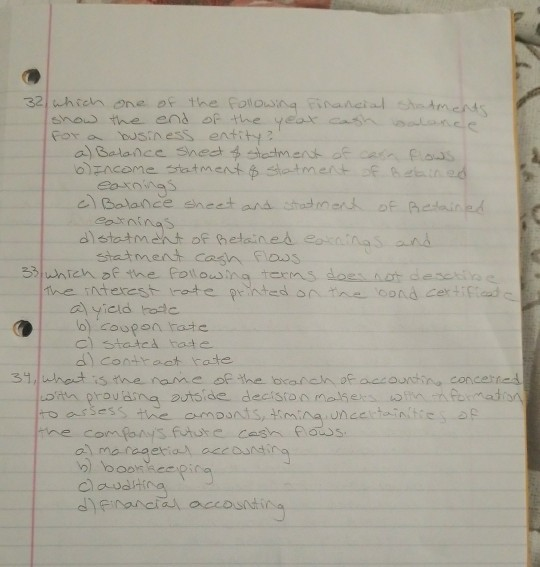 32, which one of the following financial statments
show the end of the year cash balance
for a business entity?
a) Balance sheet & statment of cash flows
b) Income statment & statment of Retained
earnings
c) Balance sheet and statment of Retained
earnings
d) statment of Retained earnings and
statment cash flows
33, which of the following terms does not describe
the interest rate printed on the bond certificate
a) yield rate
b) coupon rate
c) stated rate
d) contract rate
34, what is the name of the branch of accounting concerned
with providing outside decision makers with information
to assess the amounts, timing, uncertainities of
the company's future cash flows.
a) managerial accounting
b) bookkeeping
c) auditing
d) financial accounting